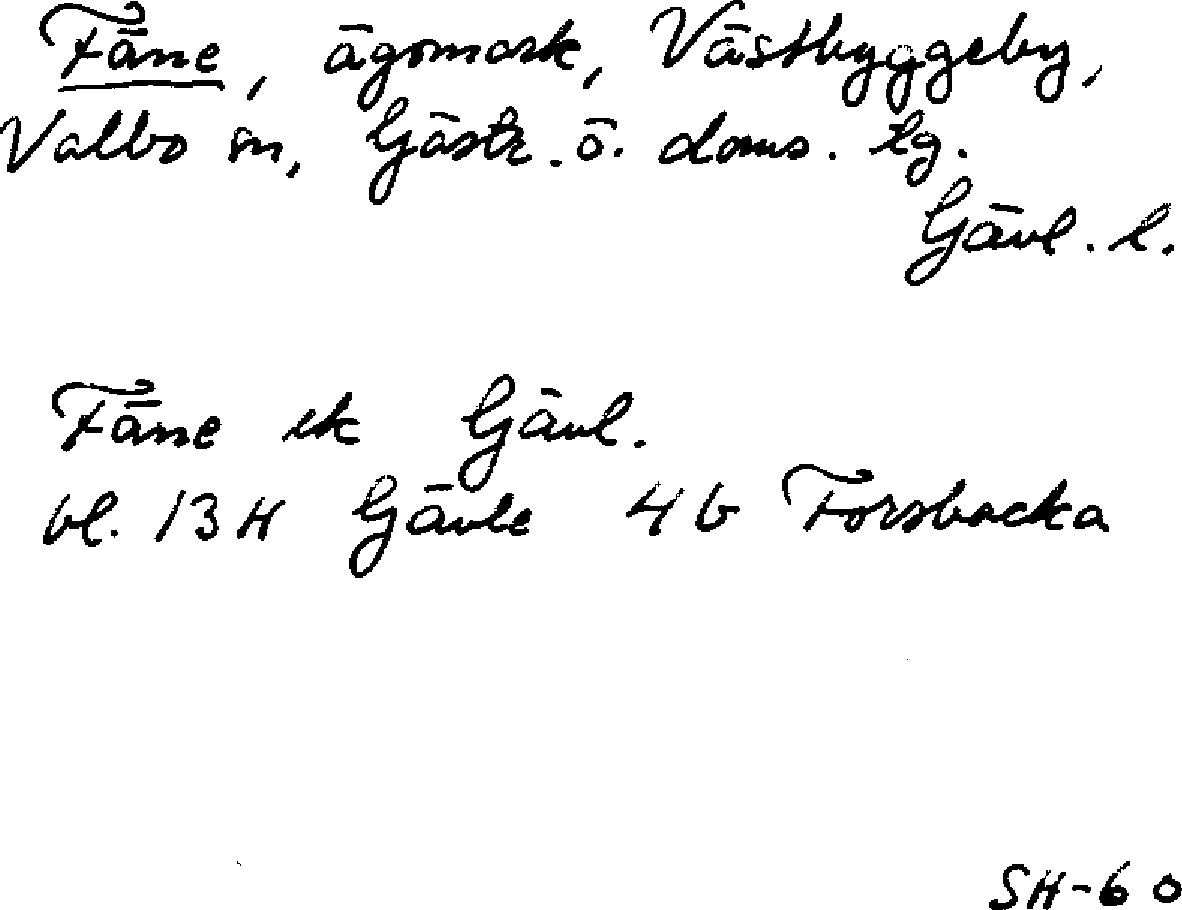 Fäne, ägomark, Västbyggeby,
Valbo sn, Gästr. ö. doms. lg.
Gävl. l.
Fäne ek Gävl.
bl. 13 H Gävle 4 b Forsbacka
SH-60